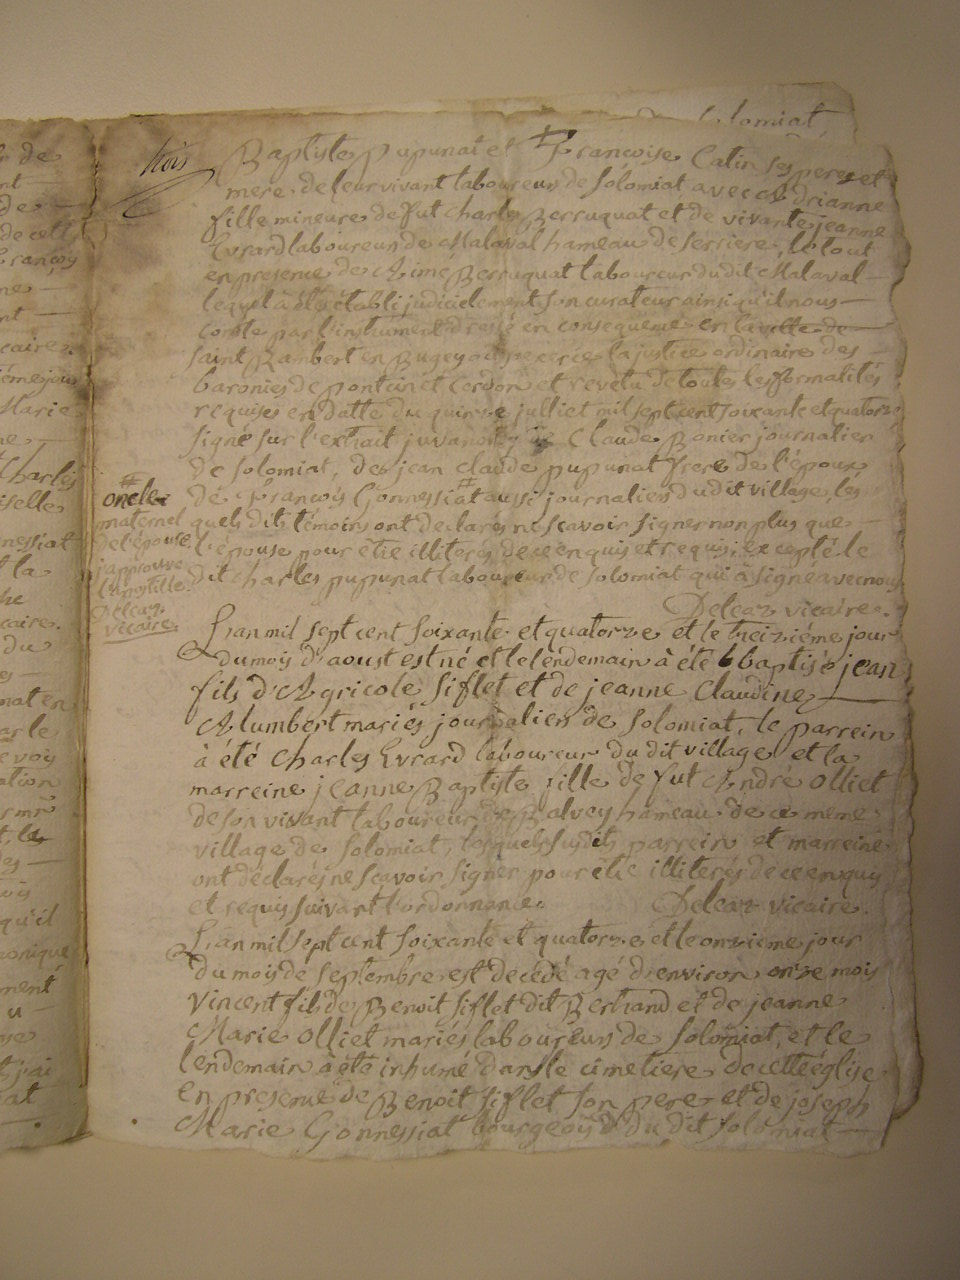 Solomiat
trois
Baptiste Pupunat et Francoise Catin ses pere et
mere de leur vivant laboureurs de Solomiat avec Adrianne
fille mineure de fut Charles Berruquat et de vivante jeanne
Evrard laboureurs de Malaval hameau de Serriere, le tout
en presence de Aimé Berruquat laboureur du dit Malaval
lequel à été établi judiciellement son curateur ainsi qu'il nous
conste par l'instrument dressé en consequence en la ville de
saint Rambert en Bugey où s'exerce la justice ordinaire des
baronies de poncin et Cerdon et revetu de toutes les formalités
requises en datte du quinze julliet mil sept cent soixante et quatorze
signé sur l'extrait juvanon Claude Bonier journalier
de Solomiat, de jean claude pupunat frere de l'époux
de François Gonnessiat # aussi journalier du dit village, les
quels dits témoins ont declarés ne scavoir signer non plus que
l'épouse pour étre illiterés de ce enquis et requis, excepté le
dit charles pupunat laboureur de Solomiat qui à signé avec nous
Deleaz vicaire.
#
oncle
maternel
de l'épouse
j'approuve
l'apostille
Deleaz
vicaire
L'an mil sept cent soixante et quatorze et le treiziéme jour
du mois d'aoust est né et le lendemain à été baptisé jean
fils d'Agricole Siflet et de jeanne Claudine
Alumbert mariés journaliers de Solomiat, le parrein
à été Charles Evrard laboureur du dit village et la
marreine jeanne Baptiste fille de fut Andre Olliet
de son vivant laboureur de Balvey hameau de ce meme
village de Solomiat, lesquels susdits parrein et marreine
ont déclarés ne scavoir signer pour étre illiterés de ce enquis
et requis suivant l'ordonnance. Deleaz vicaire.
L'an mil sept cent soixante et quatorze et le onzieme jour
du mois de septembre est decédé agé d'environ onze mois
Vincent fils de Benoit Siflet dit Bertrand et de jeanne
Marie Olliet mariés laboureurs de Solomiat, et le
lendemain à été inhumé dans le cimetiere de cette église
en presence de Benoit Siflet son pere et de joseph
Marie Gonnessiat bourgeois du dit Solomiat